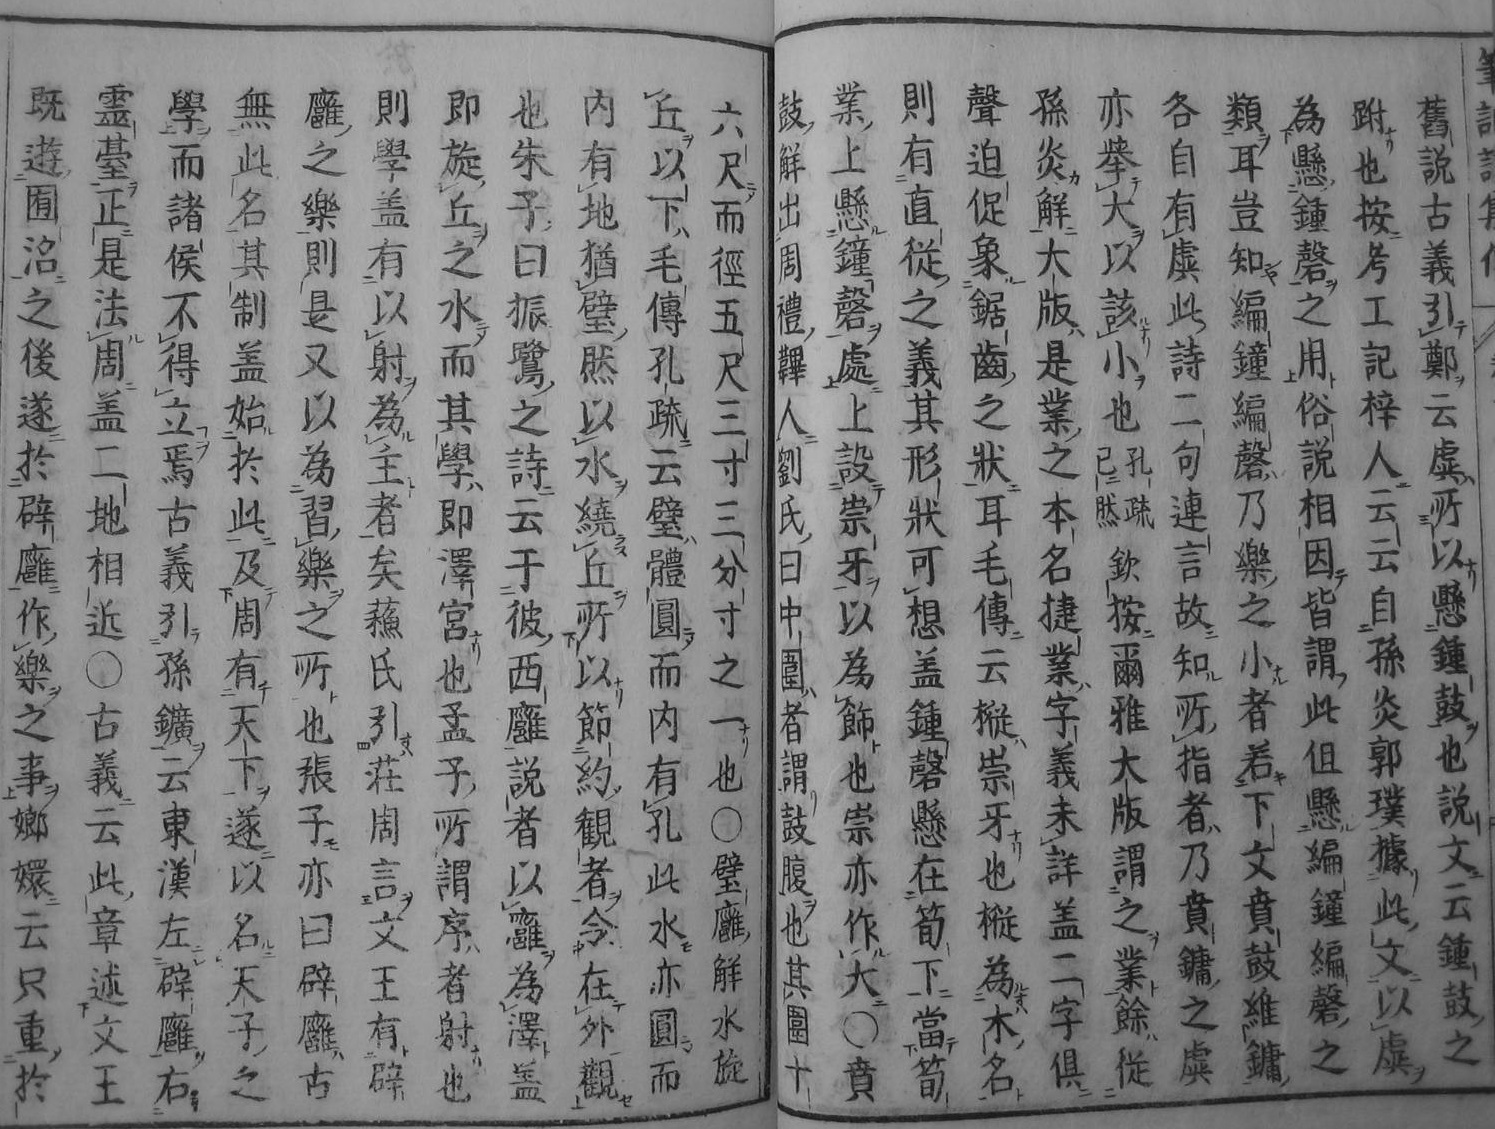 舊説古義引鄭云虡所以懸鍾鼓也説文云鍾鼓之
跗也按考工記梓人云云自孫炎郭璞據此文以虡
為懸鍾磬之用俗説相因皆謂此但懸編鐘編磬之
類耳豈知編鐘編磬乃樂之小者若下文賁鼓維鏞
各自有虡此詩二句連言故知所指者乃賁鏞之虡
亦舉大以該小也孔疏已然欽按爾雅大版謂之業餘從
孫炎解大版是業之本名捷業字義未詳盖二字俱
聲迫促象鋸齒之狀耳毛傳云樅崇牙也樅為木名
則有直從之義其形狀可想盖鍾磬懸在筍下當筍
業上懸鐘磬處上設崇牙以為飾也崇亦作大〇賁
鼓解出周禮韗人劉氏曰中圍者謂鼓腹也其圍十
六尺而徑五尺三寸三分寸之一也〇璧廱解水旋
丘以下毛傳孔疏云璧體圓而内有孔此水亦圓而
内有地猶璧然以水繞丘所以節約観者令在外觀
也朱子曰振鷺之詩云于彼西廱説者以廱為澤盖
即旋丘之水而其學即澤宮也孟子所謂序者射也
則學盖有以射為主者矣蘓氏引莊周言文王有辟
廱之樂則是又以為習樂之所也張子亦曰辟廱古
無此名其制盖始於此及周有天下遂以名天子之
學而諸侯不得立焉古義引孫鑛云東漢左辟廱右
靈臺正是法周盖二地相近〇古義云此章述文王
既遊囿沼之後遂於辟廱作樂之事嫏嬛云只重於